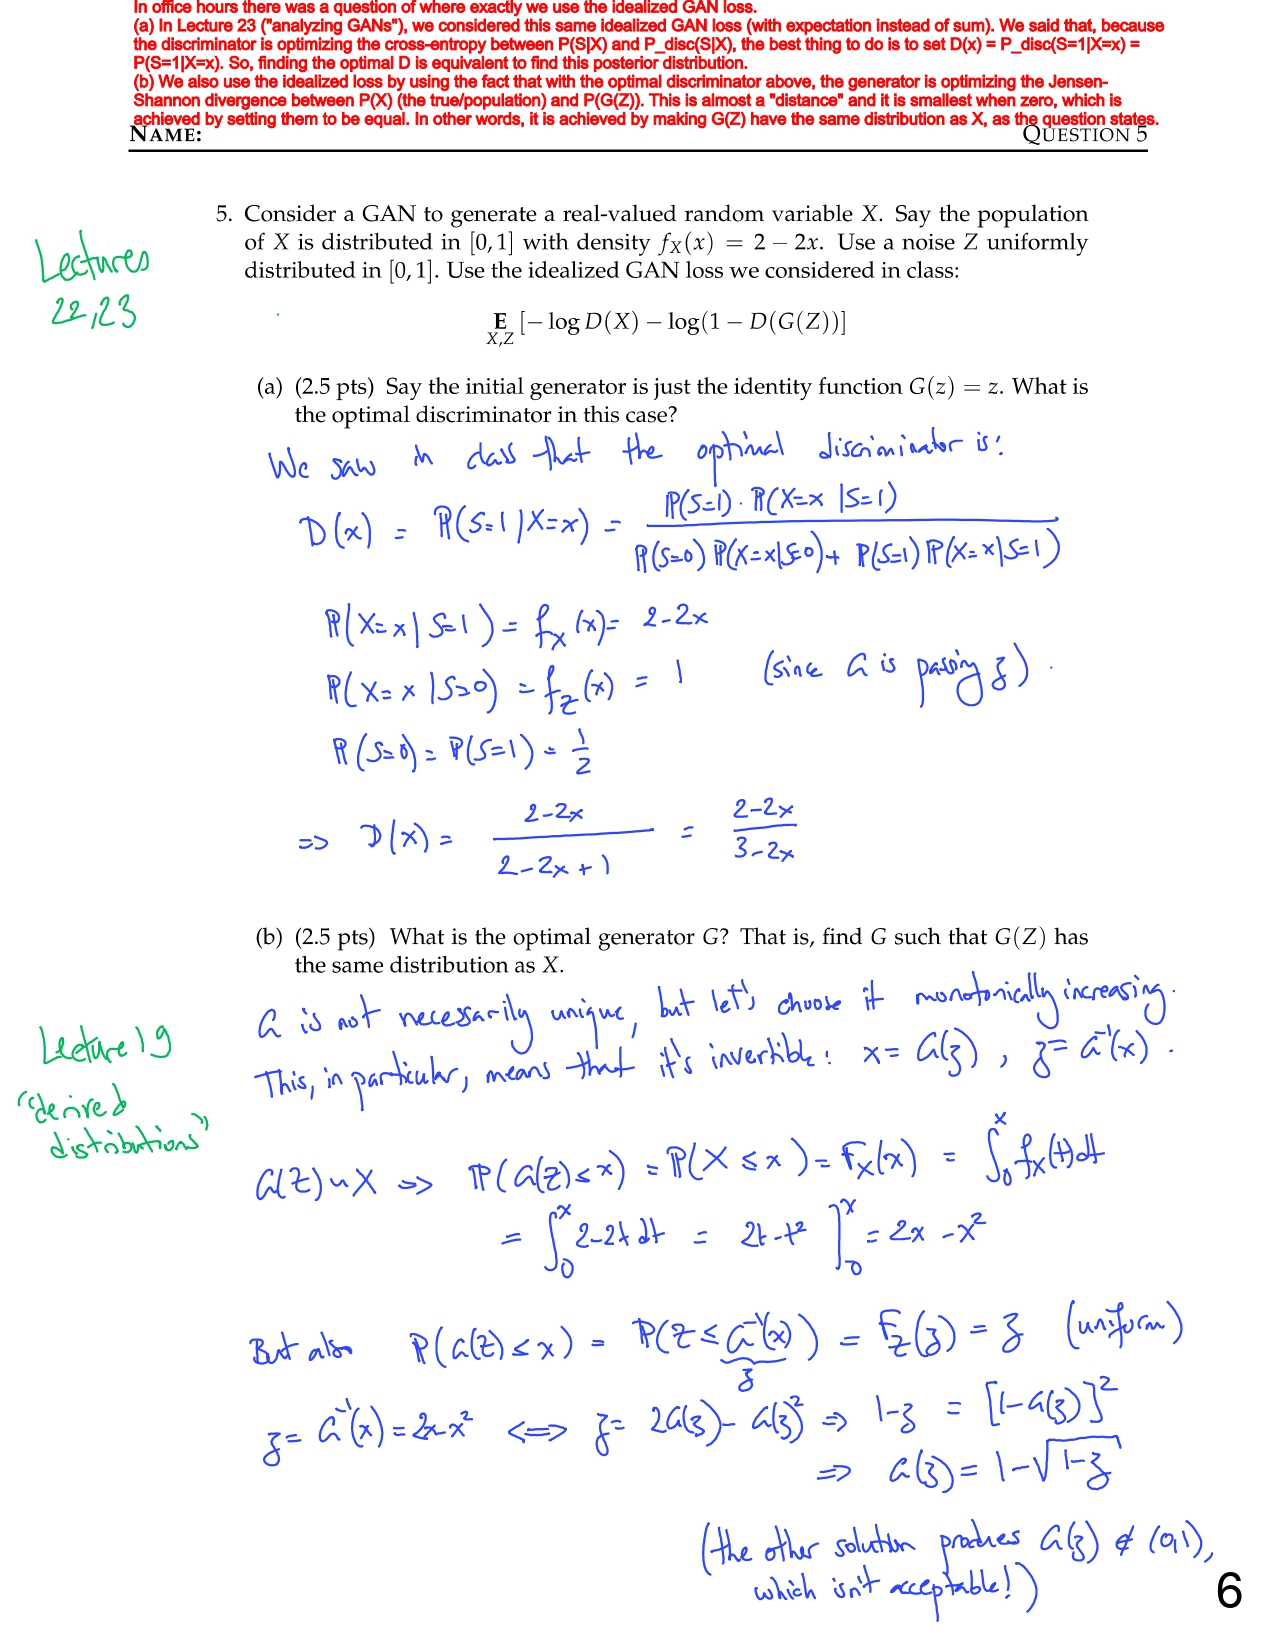 In office hours there was a question of where exactly we use the idealized GAN loss.
(a) In Lecture 23 ("analyzing GANs"), we considered this same idealized GAN loss (with expectation instead of sum). We said that, because
the discriminator is optimizing the cross-entropy between P(S|X) and P_disc(S|X), the best thing to do is to set D(x) = P_disc(S=1|X=x) =
P(S=1|X=x). So, finding the optimal D is equivalent to find this posterior distribution.
(b) We also use the idealized loss by using the fact that with the optimal discriminator above, the generator is optimizing the Jensen-
Shannon divergence between P(X) (the true/population) and P(G(Z)). This is almost a "distance" and it is smallest when zero, which is
achieved by setting them to be equal. In other words, it is achieved by making G(Z) have the same distribution as X, as the question states.
NAME: QUESTION 5
5. Consider a GAN to generate a real-valued random variable X. Say the population
of X is distributed in [0, 1] with density f_X(x) = 2 − 2x. Use a noise Z uniformly
distributed in [0, 1]. Use the idealized GAN loss we considered in class:
Lectures
22,23
E_{X,Z} [− log D(X) − log(1 − D(G(Z))]
(a) (2.5 pts) Say the initial generator is just the identity function G(z) = z. What is
the optimal discriminator in this case?
We saw in class that the optimal discriminator is:
D(x) = P(S=1|X=x) = P(S=1)·P(X=x|S=1) / P(S=0)P(X=x|S=0) + P(S=1)P(X=x|S=1)
P(X=x|S=1) = f_X(x) = 2-2x
P(X=x|S=0) = f_Z(x) = 1 (since G is passing z).
P(S=0) = P(S=1) = 1/2
=> D(x) = 2-2x / 2-2x+1 = 2-2x / 3-2x
(b) (2.5 pts) What is the optimal generator G? That is, find G such that G(Z) has
the same distribution as X.
G is not necessarily unique, but let's choose it monotonically increasing.
This, in particular, means that it's invertible: x = G(z), z = G⁻¹(x).
Lecture 19
"derived
distributions"
G(Z) ~ X => P(G(Z) ≤ x) = P(X ≤ x) = F_X(x) = ∫₀ˣ f_X(t)dt
= ∫₀ˣ 2-2t dt = 2t-t² ]₀ˣ = 2x-x²
But also P(G(Z) ≤ x) = P(Z ≤ G⁻¹(x)) = F_Z(z) = z (uniform)
z
z = G⁻¹(x) = 2x-x² <=> z = 2G(z) - G(z)² => 1-z = [1-G(z)]²
=> G(z) = 1-√1-z
(the other solution produces G(z) ∉ (0,1),
which isn't acceptable!)
6